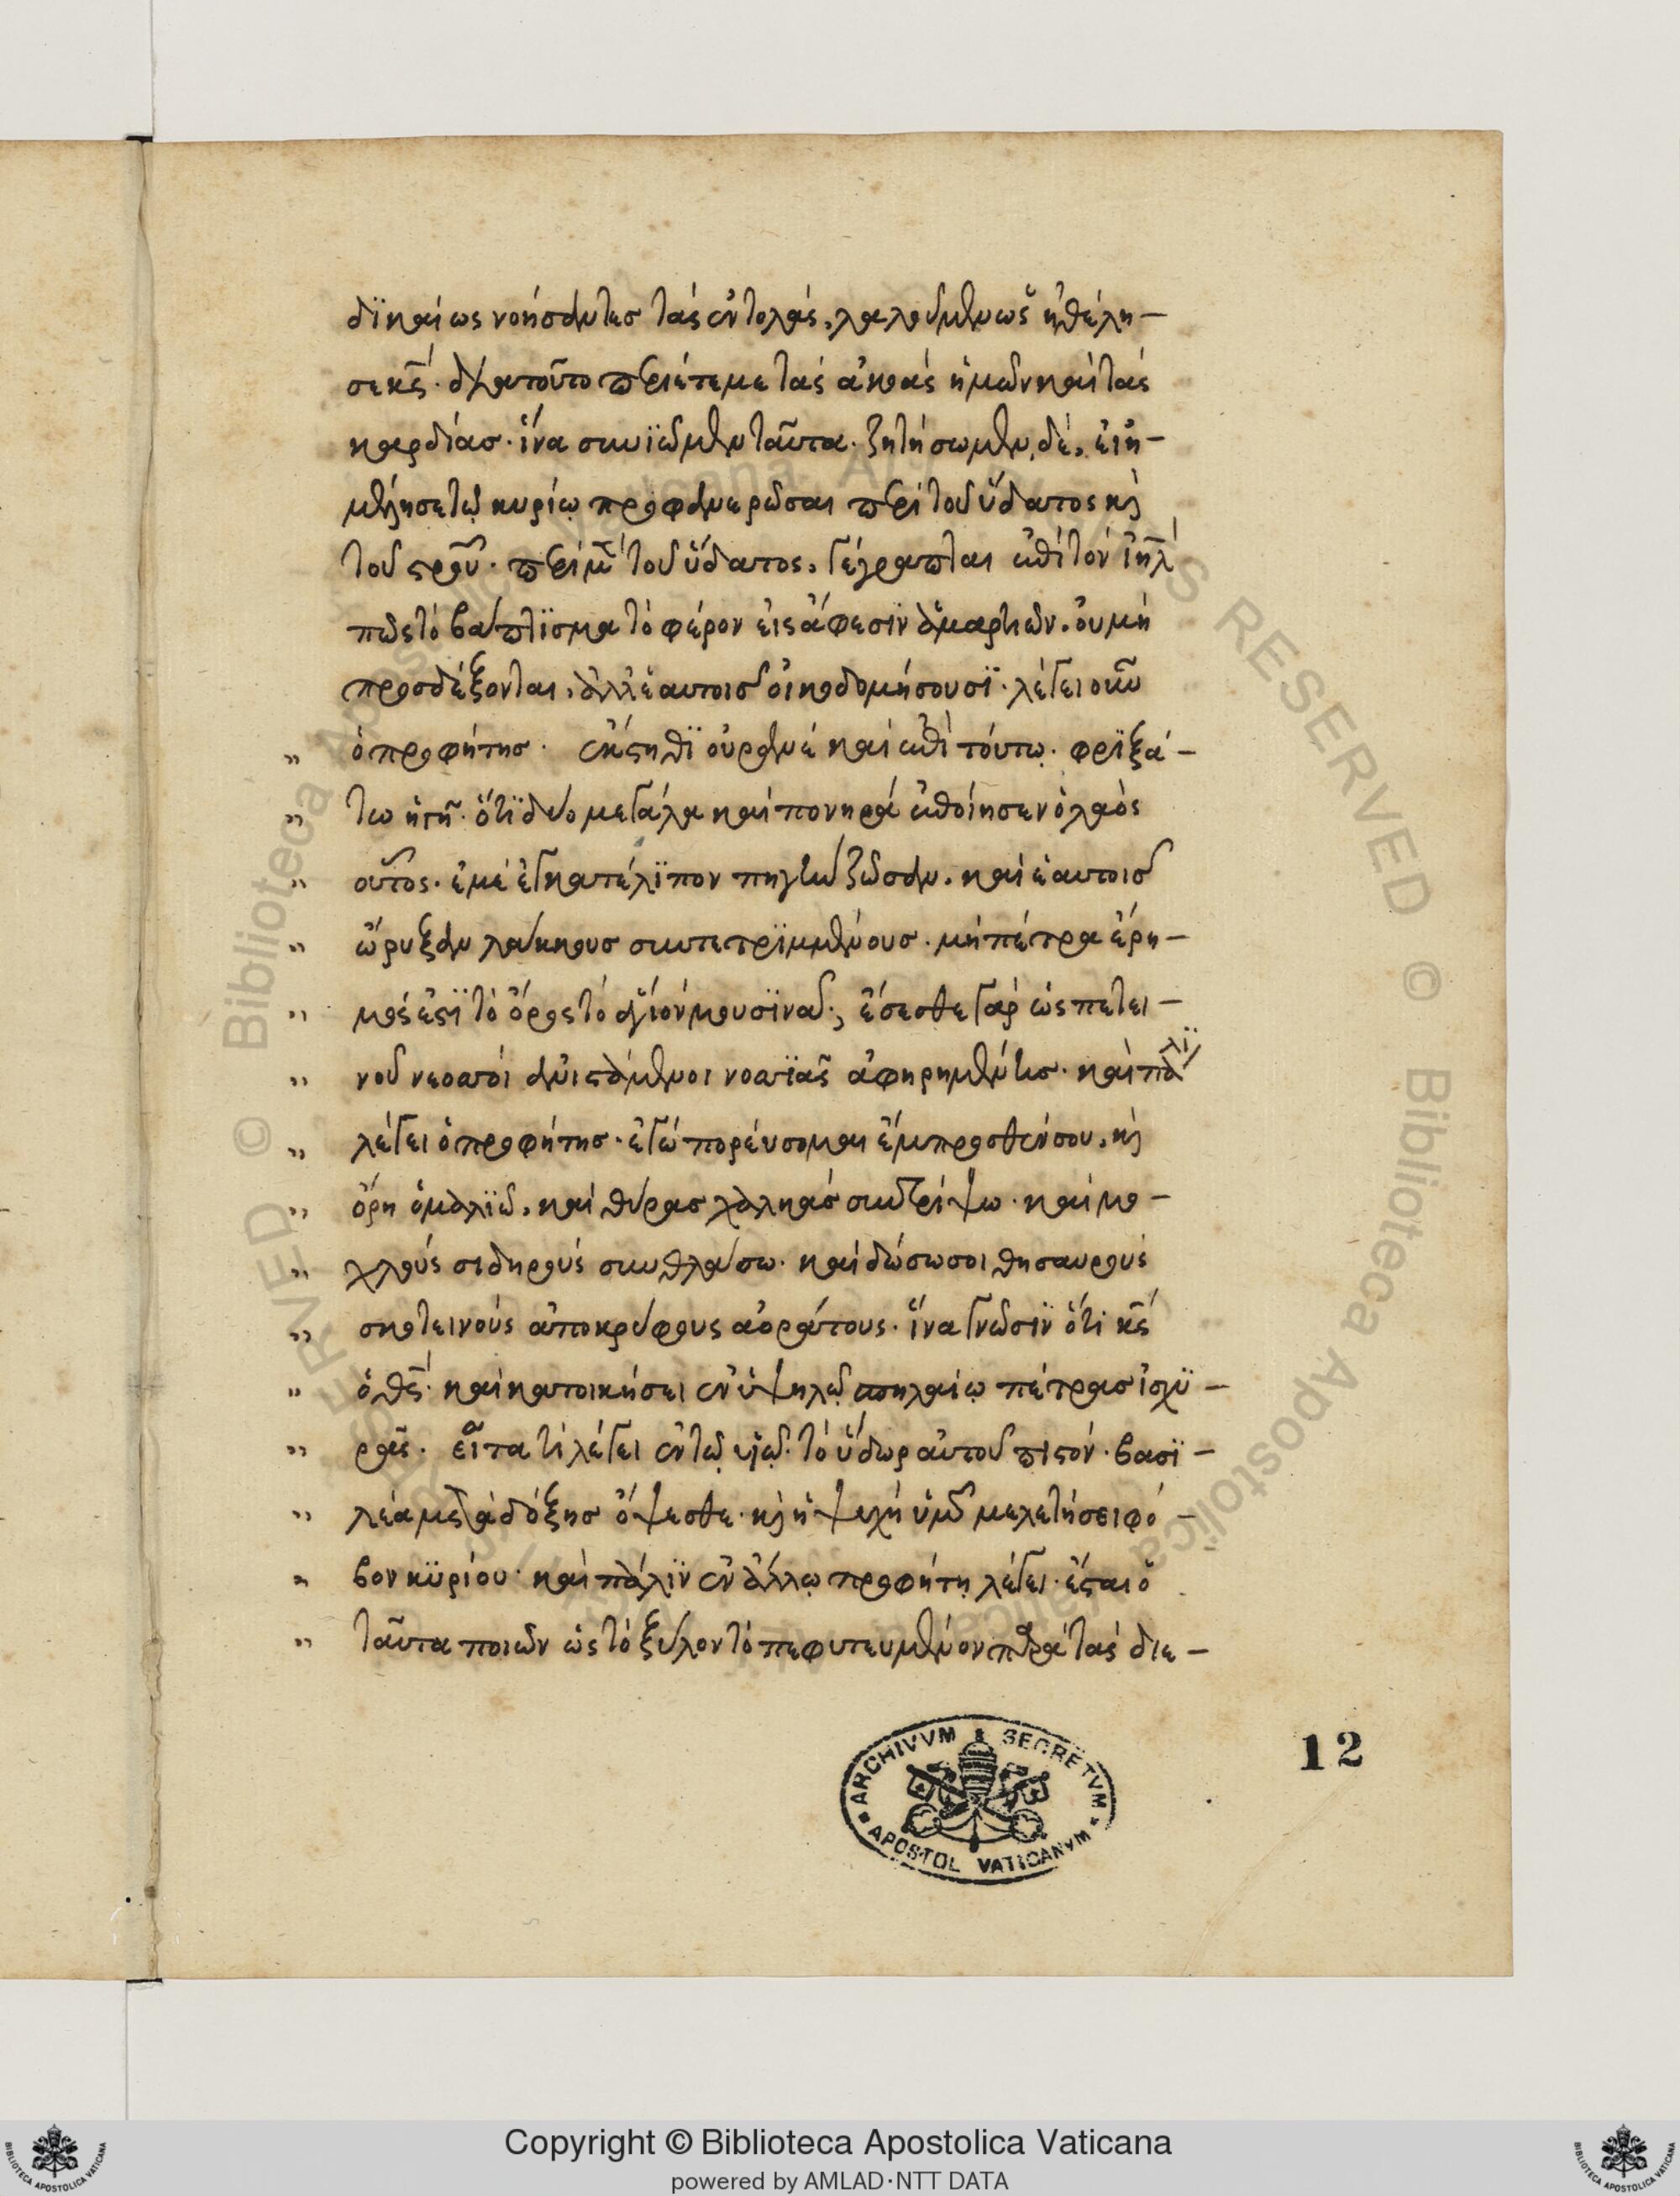 δϊκαίως νοήσαντες τὰς ἐντολὰς, λαλοῦμεν ὡς ἠθέλη-
σε κς̄. διατοῦτο περιέτεμε τὰς ἀκοὰς ἡμῶν καὶ τὰς
καρδίας. ἵνα συνϊῶμεν ταῦτα. ζητήσωμεν δὲ, εἰ ἐ-
μέλησε τῷ κυρίῳ προφανερῶσαι περὶ τοῦ ὕδατος κὶ
τοῦ σροῦ. περὶ μ̄ τοῦ ὕδατος, γέγραπται ἐπὶ τὸν ἰηλ̄
πῶς τὸ βάπτϊσμα τὸ φέρον εἰς ἄφεσϊν ἁμαρτιῶν. οὐ μὴ
προσδέξονται, ἀλλ' ἑαυτοῖς οἰκοδομήσουσϊ. λέγει οὖν
" ὁ προφήτης. ἔκστηθϊ οὐρανὲ καὶ ἐπὶ τούτῳ. φρϊξά-
" τω ἡ γῆ. ὅτϊ δύο μεγάλα καὶ πονηρὰ ἐποίησεν ὁ λαὸς
" οὗτος. ἐμὲ ἐγκατέλϊπον πηγὴν ζῶσαν. καὶ ἑαυτοῖς
" ὤρυξαν λάκκους συντετρϊμμένους. μὴ πέτρα ἔρη-
" μός ἐστϊ τὸ ὄρος τὸ ἅγιόν μου σϊνᾶ; ἔσεσθε γὰρ ὡς πετει-
" νοῦ νεοσσοὶ ἀνιστάμενοι νοσσϊᾶς ἀφηρημένης. καὶ πάλϊ
" λέγει ὁ προφήτης. ἐγὼ πορεύσομαι ἔμπροσθέν σου, κὶ
" ὄρη ὁμαλϊῶ, καὶ θύρας χαλκᾶς συντρίψω. καὶ μο-
" χλοὺς σιδηροὺς συνθλάσω. καὶ δώσω σοι θησαυροὺς
" σκοτεινοὺς ἀποκρύφους ἀοράτους. ἵνα γνῶσϊν ὅτι κς̄
" ὁ θς̄. καὶ κατοικήσει ἐν ὑψηλῷ σπηλαίῳ πέτρας ἰσχϋ-
" ρᾶς. εἶτα τί λέγει ἐν τῷ υἱῷ. τὸ ὕδωρ αὐτοῦ πιστόν. βασϊ-
" λέα μετὰ δόξης ὄψεσθε. κὶ ἡ ψυχὴ ὑμῶν μελετήσει φό-
" βον κϋρίου. καὶ πάλϊν ἐν ἄλλῳ προφήτῃ λέγει. ἔσται ὁ
" ταῦτα ποιῶν ὡς τὸ ξύλον τὸ πεφυτευμένον παρὰ τὰς διε-
ARCHIVVM SECRETVM
APOSTOL VATICANVM
12
© Biblioteca Apostolica Vaticana ALL RIGHTS RESERVED
Copyright © Biblioteca Apostolica Vaticana
powered by AMLAD·NTT DATA
BIBLIOTECA APOSTOLICA VATICANA
BIBLIOTECA APOSTOLICA VATICANA